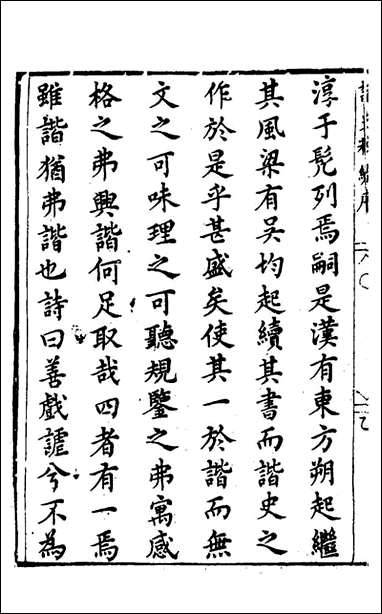 淳于髡列焉嗣是漢有東方朔起繼
其風梁有吳均起續其書而諧史之
作於是乎甚盛矣使其一於諧而無
文之可味理之可聽規鑒之弗寓感
格之弗興諧何足取哉四者有一焉
雖諧猶弗諧也詩曰善戲謔兮不為